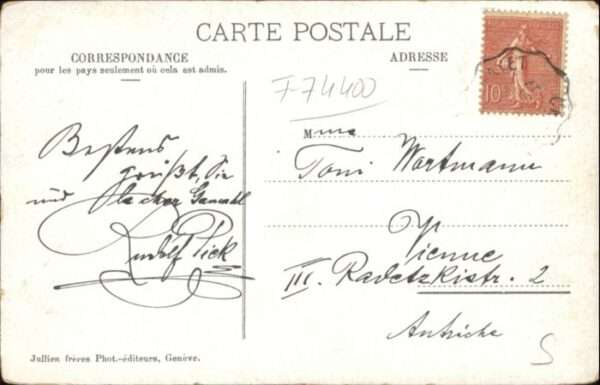 CARTE POSTALE
CORRESPONDANCE
pour les pays seulement où cela est admis.
ADRESSE
10
F74400
Bestens
grüßt Sie
und
Gemahl
Rudolf Pick
Mme
Toni Wortmann
Vienne
III. Radetzkistr. 2
Autriche
Jullien frères Phot.-éditeurs, Genève.
S